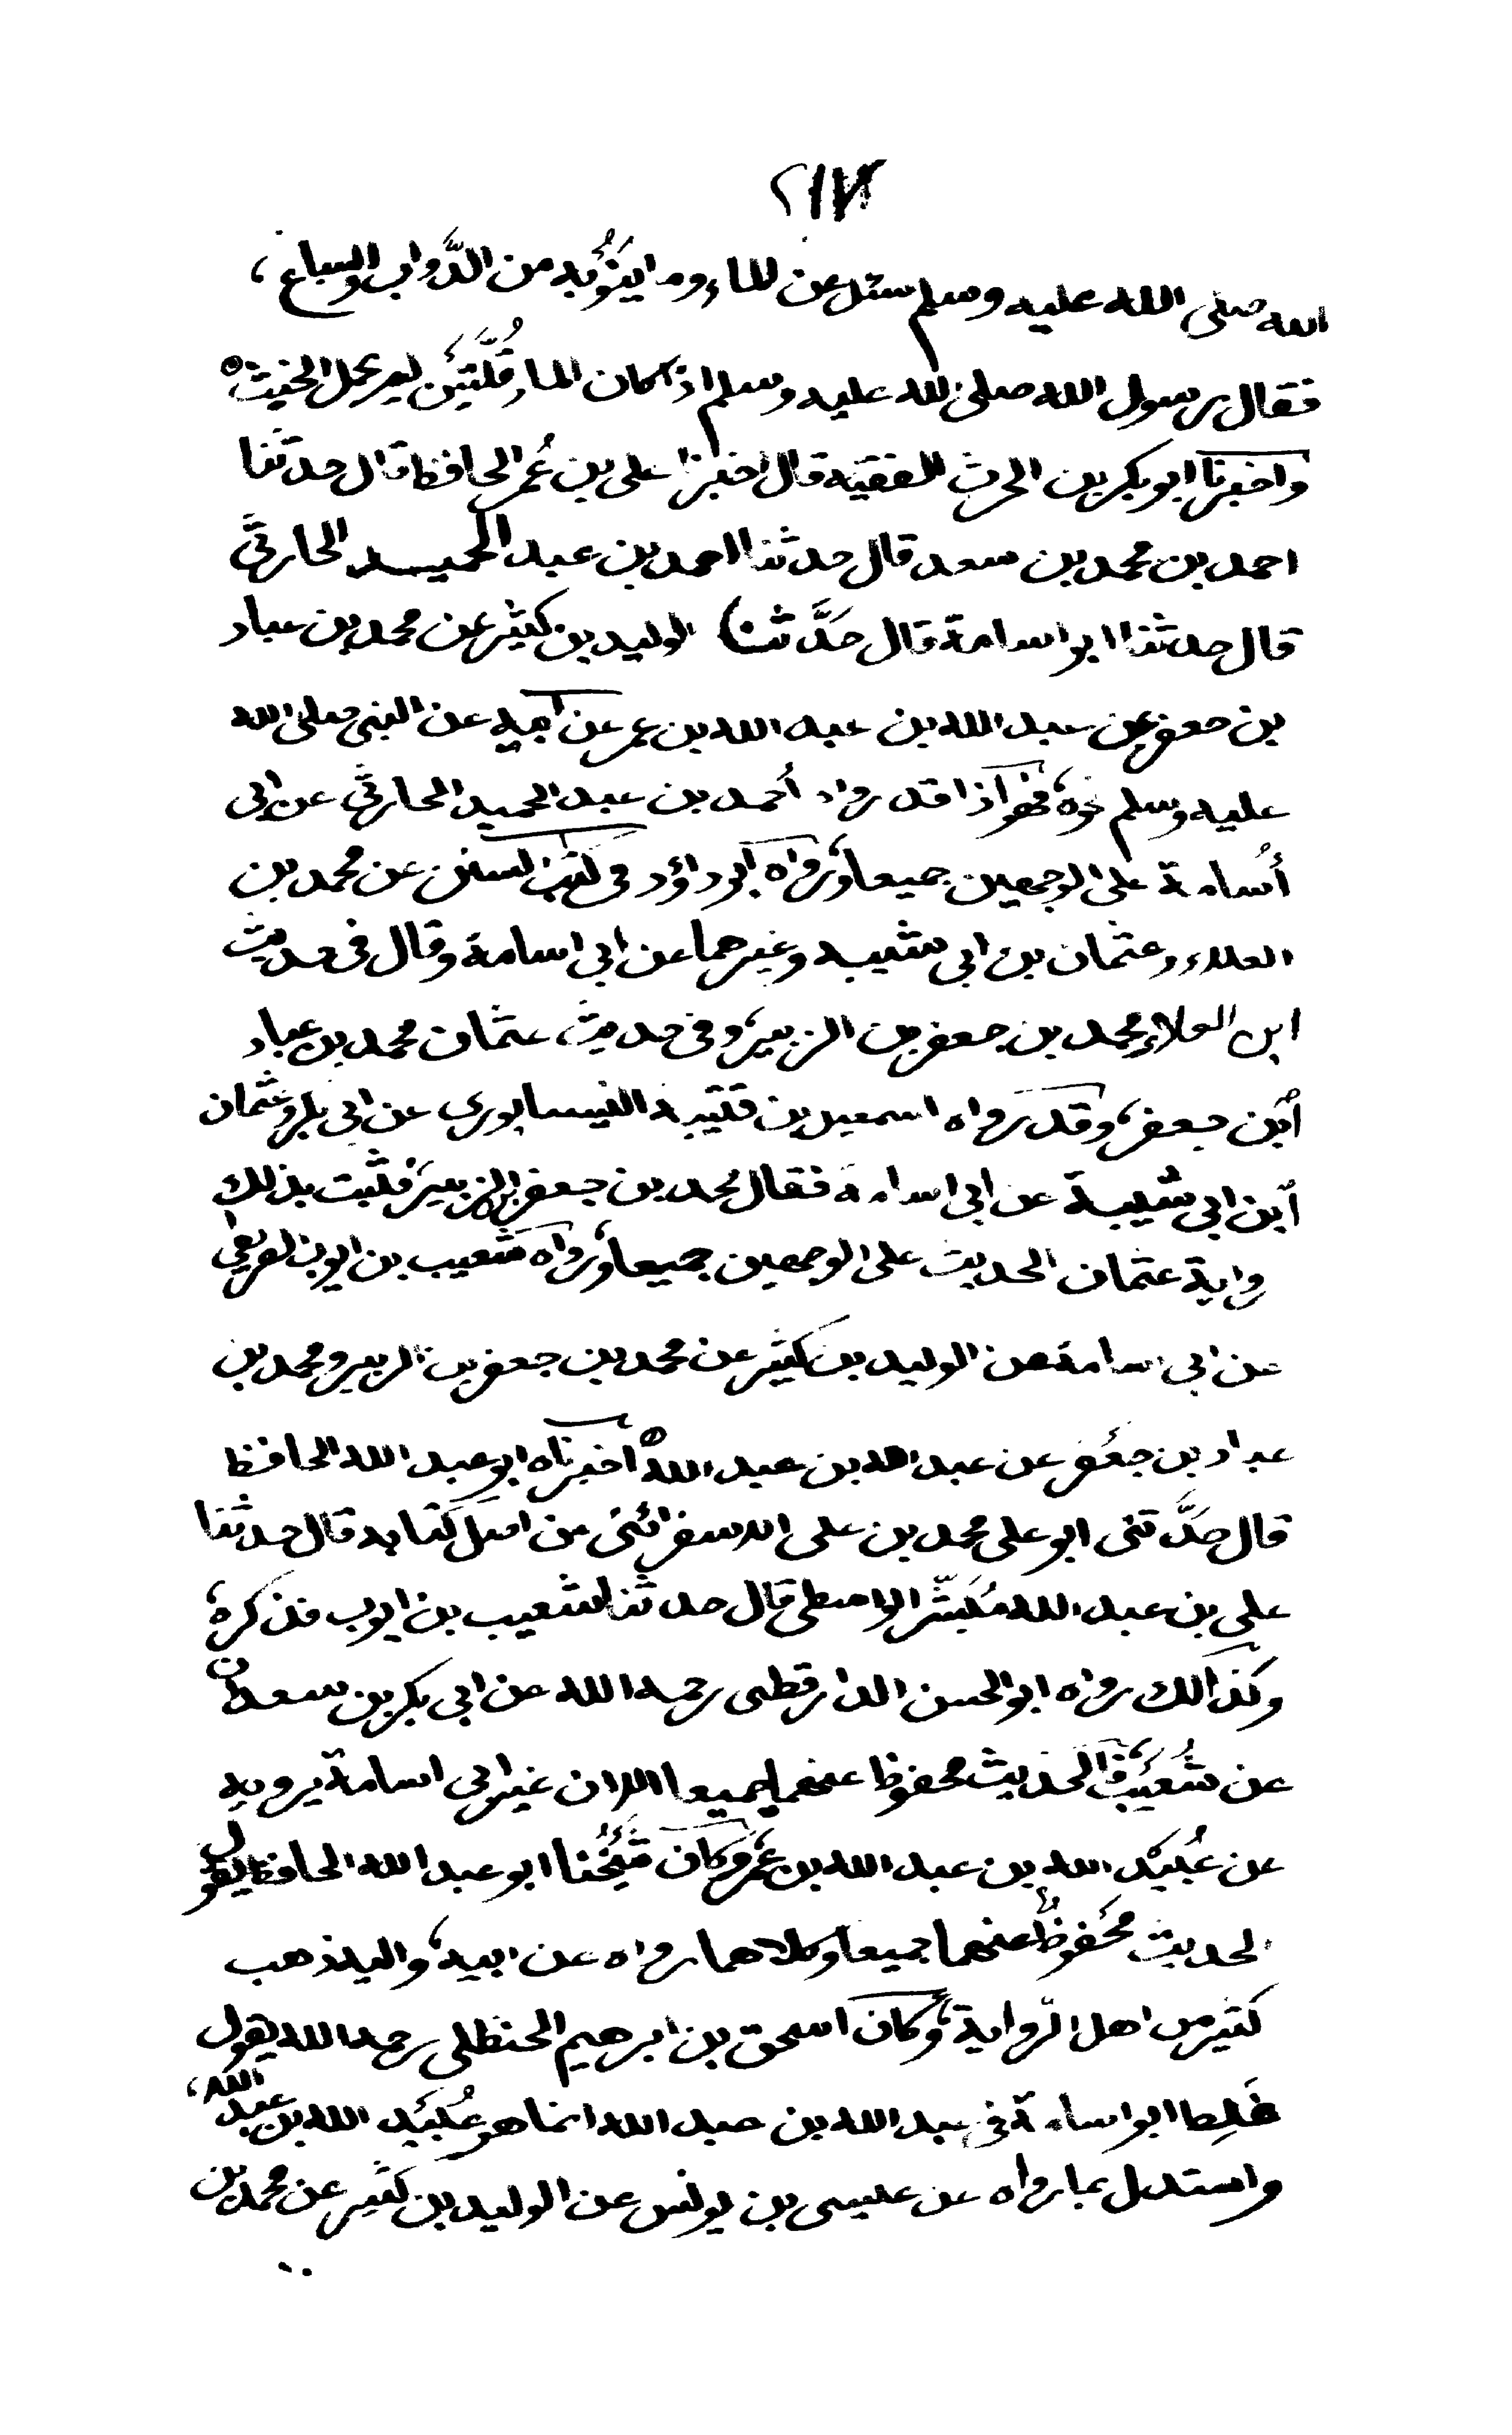 ٢١٧
الله صلى الله عليه وسلم سئل عن الماء وما ينوُبه من الدَّواب والسباع،
فقال رسول الله صلى الله عليه وسلم اذا كان الماء قُلَّتَيْن لم يحمل الخبث ه
واخبرنا ابو بكر بن الحرث الفقيه قال اخبرنا على بن عُمر الحافظ قال حدثنا
احمد بن محمد بن سعد قال حدثنا احمد بن عبد الحميد الحارثي
قال حدثنا ابو اسامة قال حَدَّثنا الوليد بن كثير عن محمد بن عباد
بن جعفر عن عبد الله بن عبد الله بن عمر عن ابيه عن النبي صلى الله
عليه وسلم نحوه، فهو اذا قد رواه أحمد بن عبد الحميد الحارثي عن ابى
أُسامة على الوجهين جميعا، ورواه ابو داؤد في كتب السنن عن محمد بن
العلاء وعثمان بن ابى شيبه وغيرهما عن ابي اسامة وقال في حديث
ابن العلاء محمد بن جعفر بن الزبير، وفي حديث عثمان محمد بن عباد
ابن جعفر، وقد رواه اسمعيل بن قتيبة النيسابورى عن ابى بكر وعثمان
ابن ابي شيبة عن ابى اسامة فقال محمد بن جعفر بن الزبير، فثبت بذلك
رواية عثمان الحديث على الوجهين جميعا، ورواه شعيب بن ايوب الصريفي
عن ابى اسامة عن الوليد بن كثير عن محمد بن جعفر بن الزبير ومحمد بن
عباد بن جعفر عن عبد الله بن عبد الله ه اخبرناه ابو عبد الله الحافظ
قال حَدَّثني ابو على محمد بن على الاسفرائنى من اصل كتابه قال حدثنا
على بن عبد الله مُبَشّر الواسطى قال حدثنا شعيب بن ايوب فذكره،
وكذالك رواه ابو الحسن الدارقطنى رحمه الله عن ابي بكر بن سعدان
عن شُعَيْب، فالحديث محفوظ عنهما جميعا الا ان غير ابى اسامة يرويه
عن عُبيْد الله بن عبد الله بن عمر، وكان شَيْخُنا ابو عبد الله الحافظ يقول
الحديث محْفوظٌ عنهما جميعا وكلاهما رواه عن ابيه، واليه ذهب
كثير من اهل الرّواية، وكان اسحق بن ابرهيم الحنظلى رحمه الله يقول
غَلِط ابو اسامة في عبد الله بن عبد الله انما هو عُبيْد الله بن عبد الله،
واستدل بما رواه عن عيسى بن يونس عن الوليد بن كثير عن محمد بن